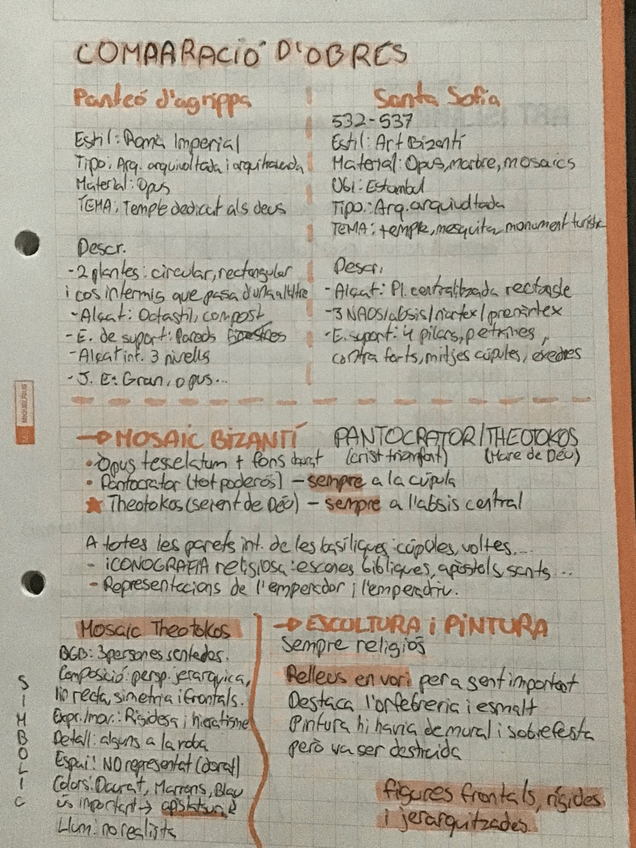 COMPARACIÓ D'OBRES
Panteó d'agrippa
Estil: Romà Imperial
Tipo: Arq. arquivoltada i arquitravada
Material: Opus
TEMA: Temple dedicat als deus
Descr.
-2 plantes: circular, rectangular
i cos intermig que pasa d'una a l'altre
-Alçat: Octastil, compost
-E. de suport: Parets
-Alçat int. 3 nivells
-J. E: Gran, opus...
Santa Sofia
532-537
Estil: Art Bizantí
Material: Opus, marbre, mosaics
Ubi: Estambul
Tipo: Arq. arquivoltada
TEMA: temple, mesquita, monument turístic
Descr.
-Alçat: Pl. centralitzada rectangle
-3 NAOS/absis/nartex/prenàrtex
-E. suport: 4 pilars, petxines,
contraforts, mitjes cúpules, exedres
→MOSAIC BIZANTÍ PANTOCRATOR/THEOTOKOS
(crist triomfant) (Mare de Déu)
• Opus tesselatum + fons daurat
• Pantocrator (tot poderós) – sempre a la cúpula
★ Theotokos (servent de Déu) – sempre a l'absis central
A totes les parets int. de les basíliques: cúpoles, voltes...
- iCONOGRAFIA religiosa: escenes bíbliques, apòstols, sants...
- Representacions de l'emperador i l'emperadriu.
Mosaic Theotokos
3 persones sentades.
Composició: persp. jerarquica,
lin recta, simetria i frontals.
Expr./mov.: Rigidesa i hieratisme
Detall: alguns a la roba
Espai: NO representat (daurat)
Colors: Daurat, Marrons, Blau
ús important →
Llum: no realista
SIMBOLIC
→ESCOLTURA i PINTURA
Sempre religiós
Relleus en vori per a sent important
Destaca l'orfebreria i esmalt
Pintura hi havia de mural i sobre festa
però va ser destruida
figures frontals, rígides
i jerarquitzades.
MIQUELRIUS